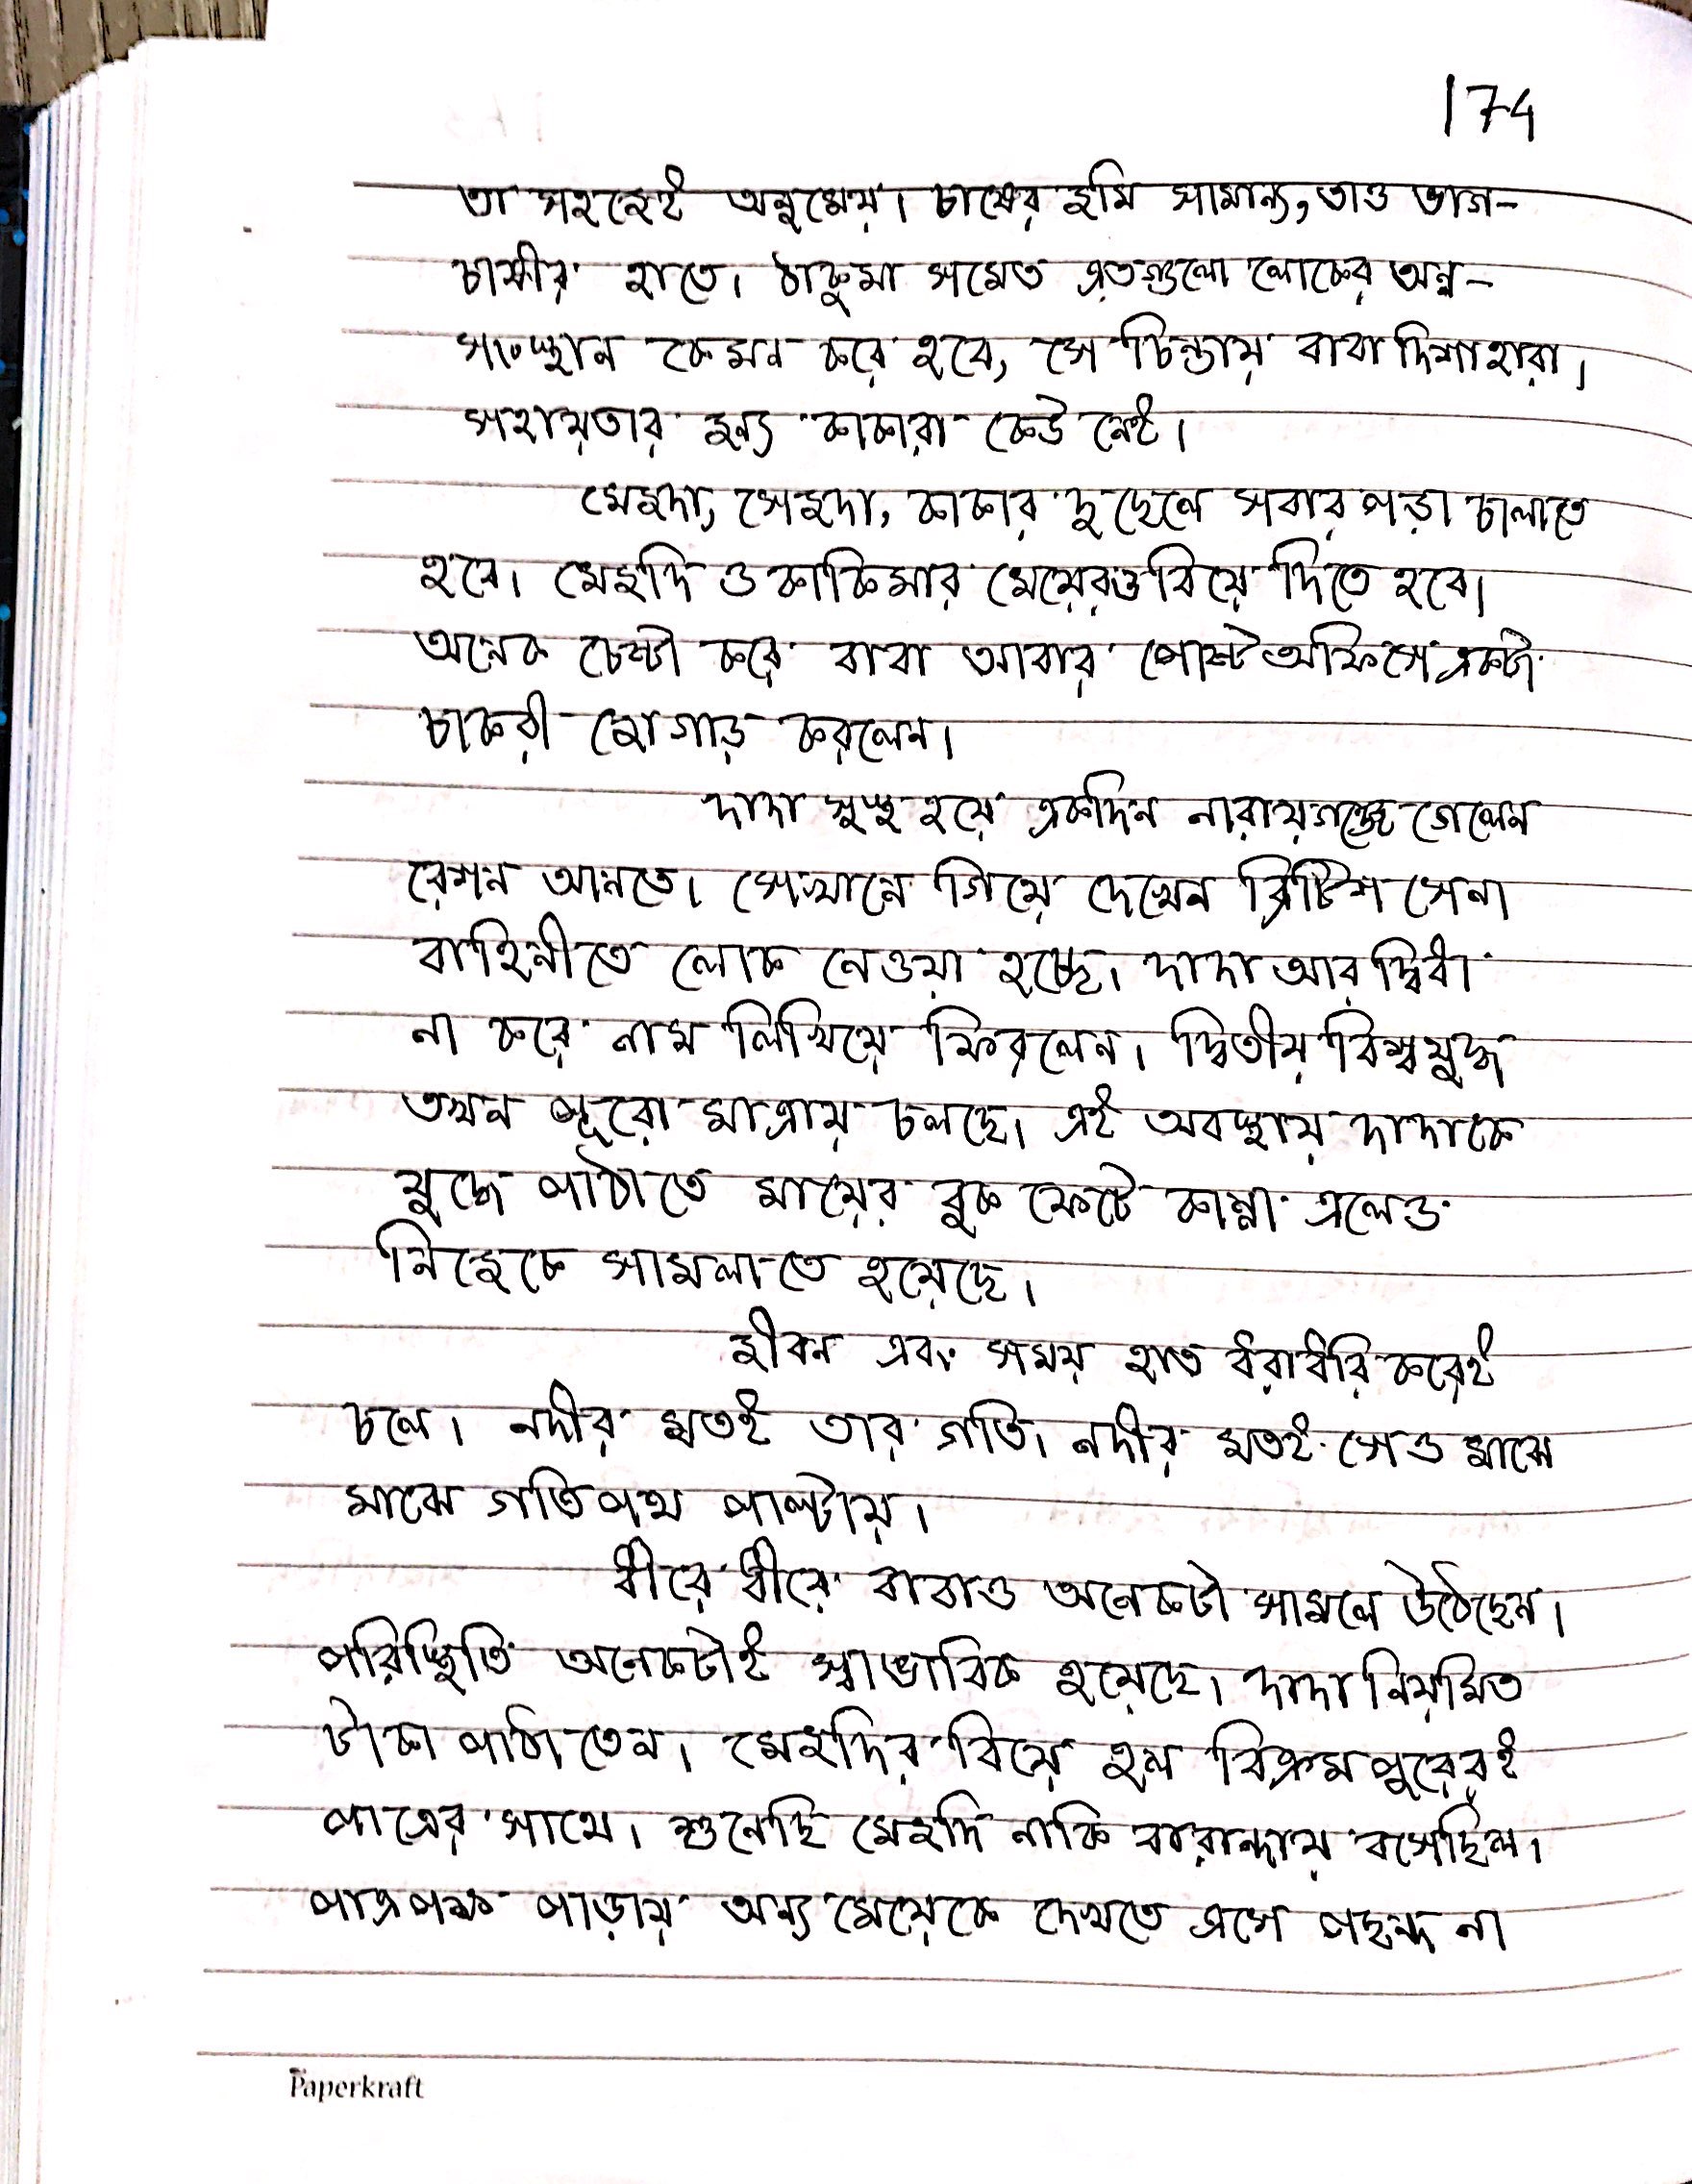 174
তা সহজেই অনুমেয়। চাষের জমি সামান্য, তাও ভাগ-
চাষীর হাতে। ঠাকুমা সমেত এতগুলো লোকের অন্ন-
সংস্থান কেমন করে হবে, সে চিন্তায় বাবা দিশাহারা।
সহায়তার জন্য কাকারা কেউ নেই।
মেজদা, সেজদা, কাকার দু ছেলে সবার পড়া চালাতে
হবে। মেজদি ও কাকিমার মেয়েরও বিয়ে দিতে হবে।
অনেক চেষ্টা করে বাবা আবার পোষ্ট অফিসে একটা
চাকরী জোগাড় করলেন।
দাদা সুস্থ হয়ে একদিন নারায়ণগঞ্জে গেলেন
রেশন আনতে। সেখানে গিয়ে দেখেন ব্রিটিশ সেনা
বাহিনীতে লোক নেওয়া হচ্ছে। দাদা আর দ্বিধা
না করে নাম লিখিয়ে ফিরলেন। দ্বিতীয় বিশ্বযুদ্ধ
তখন পূরো মাত্রায় চলছে। এই অবস্থায় দাদাকে
যুদ্ধে পাঠাতে মায়ের বুক ফেটে কান্না এলেও
নিজেকে সামলাতে হয়েছে।
জীবন এবং সময় হাত ধরাধরি করেই
চলে। নদীর মতই তার গতি। নদীর মতই সেও মাঝে
মাঝে গতিপথ পাল্টায়।
ধীরে ধীরে বাবাও অনেকটা সামলে উঠেছেন।
পরিস্থিতি অনেকটাই স্বাভাবিক হয়েছে। দাদা নিয়মিত
টাকা পাঠাতেন। মেজদির বিয়ে হল বিক্রমপুরেরই
পাত্রের সাথে। শুনেছি মেজদি নাকি বারান্দায় বসেছিল।
পাত্রপক্ষ পাড়ায় অন্য মেয়েকে দেখতে এসে পছন্দ না
Paperkraft